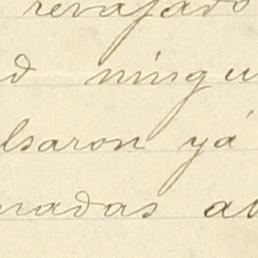 revajado
d ningu
lsaron yá
nadas au